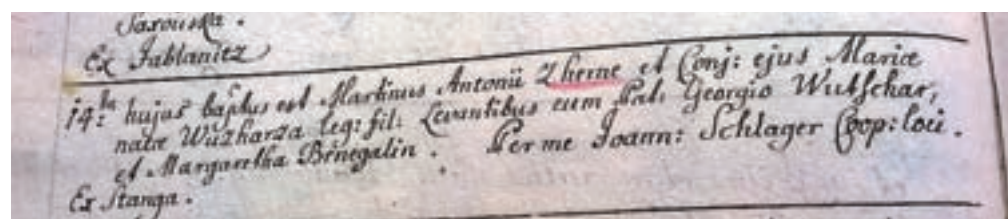 Saxouska.
Ex Jablanitz
14:ta hujus baptus est Martinus Antonii Zherne et Conj: ejus Mariæ
natæ Wuzharza leg: fil: Levantibus eum Pat: Georgio Wutschar,
et Margaretha Benegalin. Per me Joann: Schlager Coop: loci.
Ex Stanga.